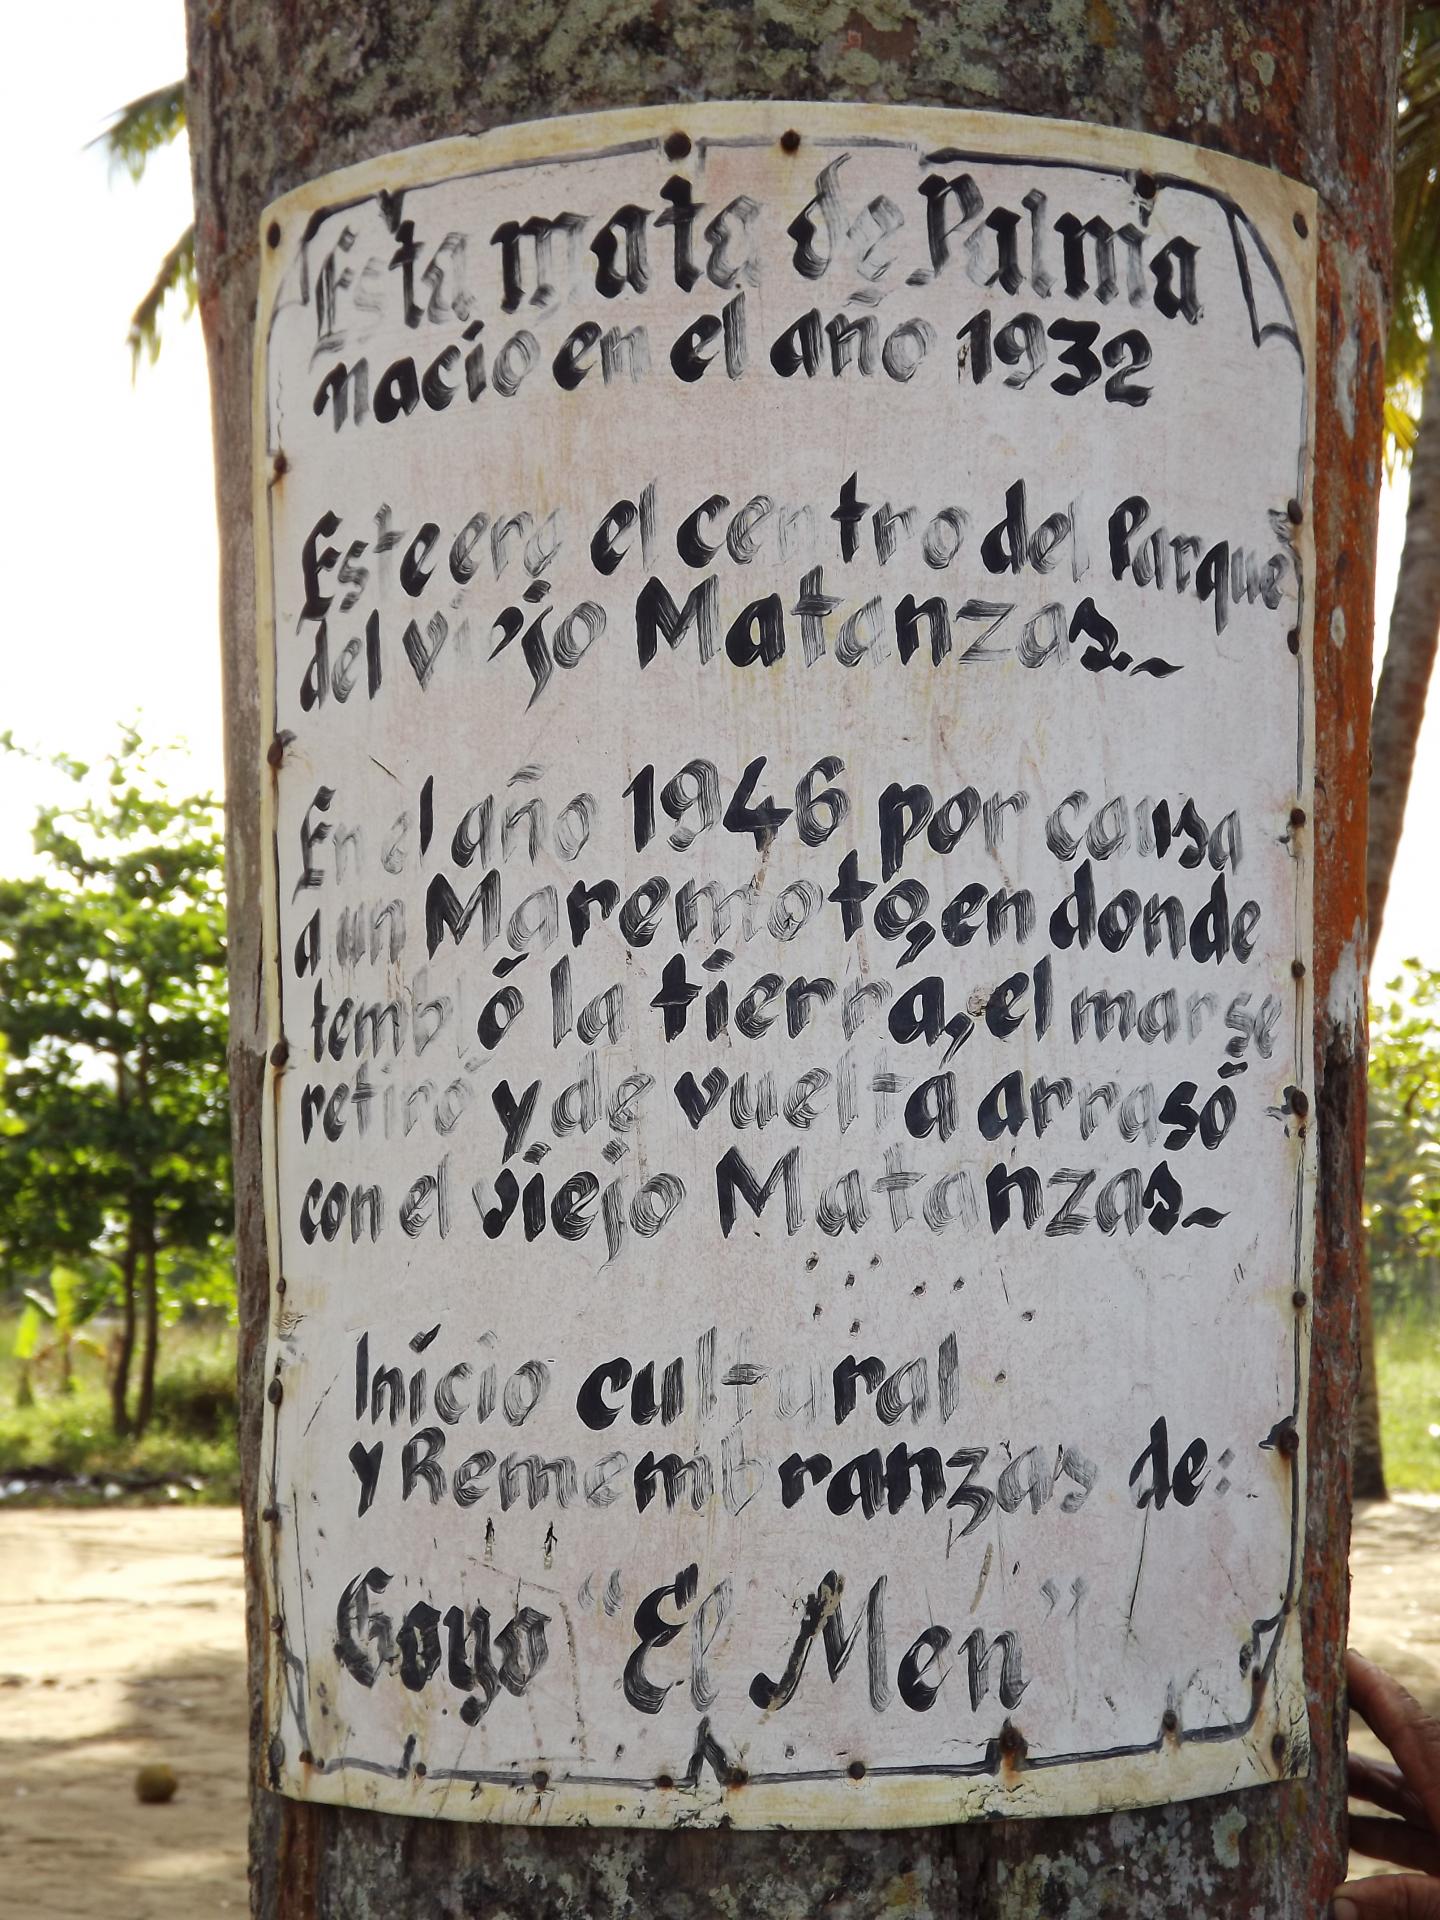 Esta mata de Palma
nació en el año 1932
Este era el centro del Parque
del viejo Matanzas.~
En el año 1946 por causa
a un Maremoto, en donde
tembló la tierrá, el mar se
retiró y de vuelta arrasó
con el viejo Matanzas~
Início cultural
y Remembranzas de:
Goyo "El Men"